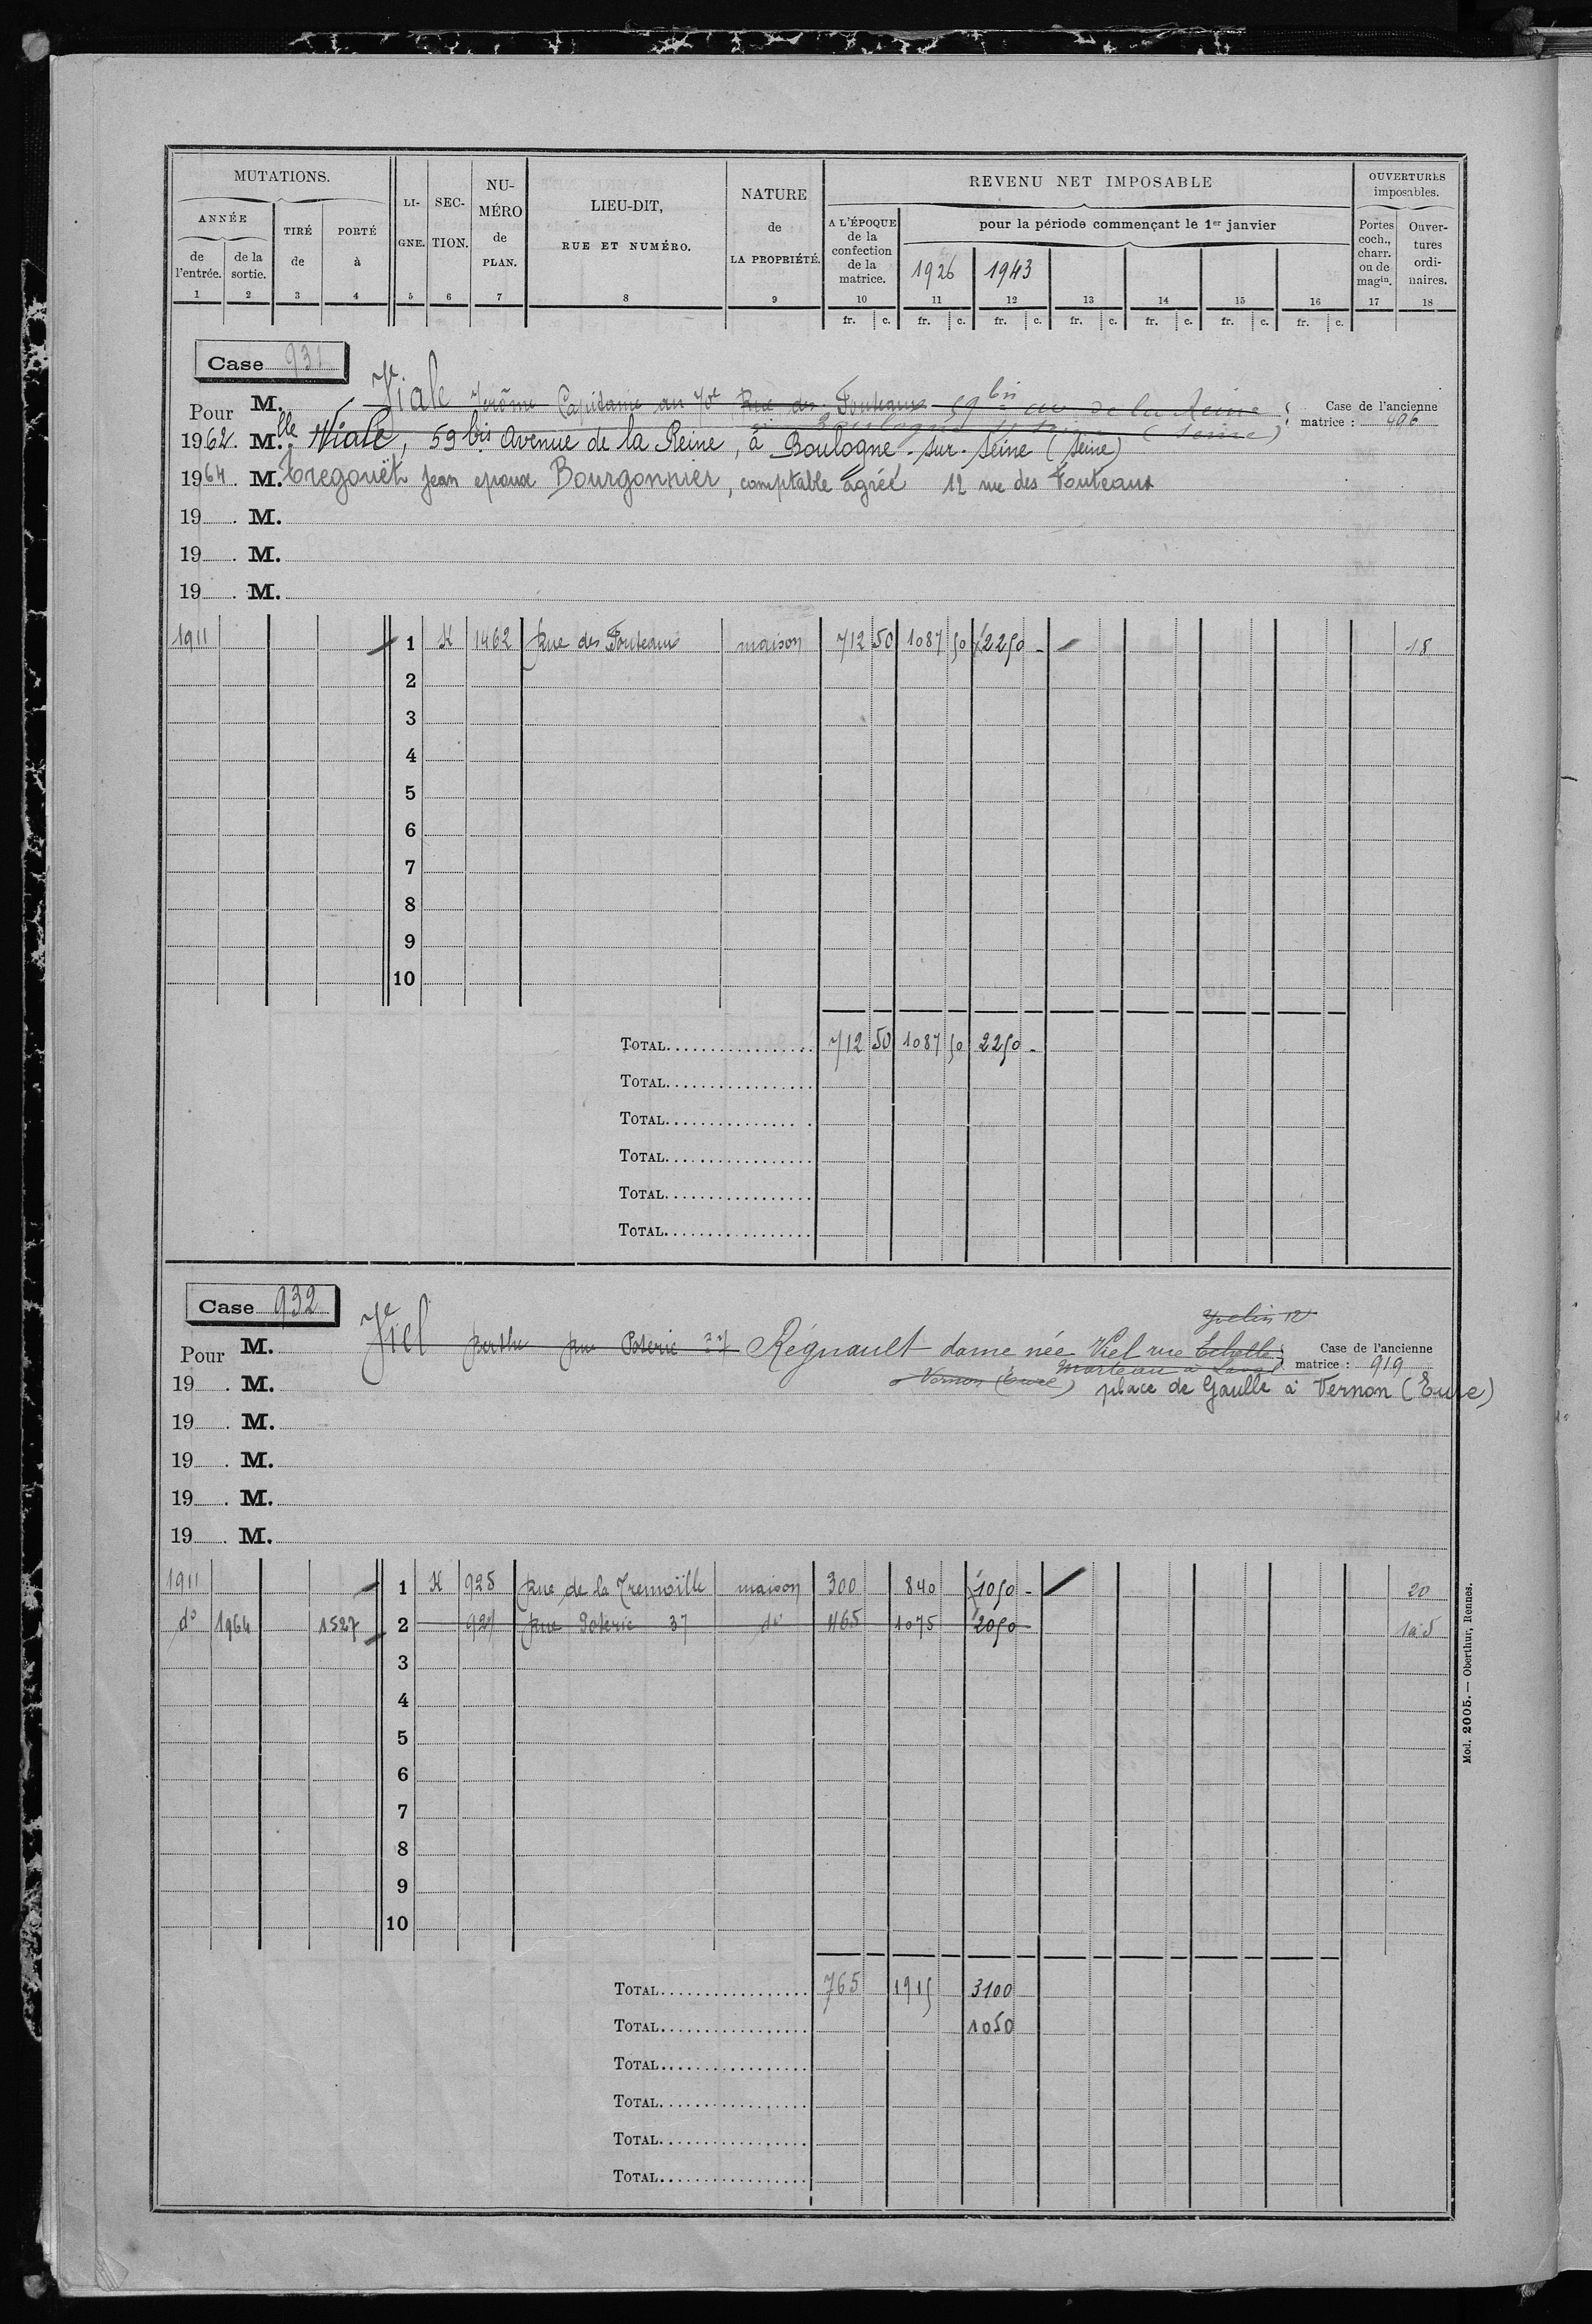 MUTATIONS.
ANNÉE
de l'entrée.
de la sortie.
TIRÉ de
PORTÉ à
LI-GNE.
SEC-TION.
NU-MÉRO de PLAN.
LIEU-DIT,
RUE ET NUMÉRO.
NATURE de LA PROPRIÉTÉ.
REVENU NET IMPOSABLE
A L'ÉPOQUE de la confection de la matrice.
pour la période commençant le 1er janvier
1926 1943
OUVERTURES imposables.
Portes coch., charr. ou de magin.
Ouver-tures ordi-naires.
1 2 3 4 5 6 7 8 9 10 11 12 13 14 15 16 17 18
fr. c. fr. c. fr. c. fr. c. fr. c. fr. c. fr. c.
Case 931
Pour M. Viale Jérôme Capitaine au Rue des Fouteaux 59 bis av de la Reine
à Boulogne s/ Seine (Seine)
Case de l'ancienne matrice : 496
1962. Melle Viale, 59 bis Avenue de la Reine, à Boulogne-sur-Seine (Seine)
1964. M. Tregouët Jean epoux Bourgonnier, comptable agréé 12 rue des Fouteaux
19 . M.
19 . M.
19 . M.
1911 1 K 1462 Rue des Fouteaux maison 712 50 1087 50 2250 - 18
2
3
4
5
6
7
8
9
10
TOTAL 712 50 1087 50 2250 -
TOTAL
TOTAL
TOTAL
TOTAL
TOTAL
Case 932
Pour M. Viel Berthe rue Poterie 37 Régnault dame née Viel rue Echelle
Marteau à Laval
Case de l'ancienne matrice : 919
19 . M. Vernon (Eure) place de Gaulle à Vernon (Eure)
19 . M.
19 . M.
19 . M.
19 . M.
1911 1 K 928 Rue de la Tremoïlle maison 300 840 1050 - 20
do 1964 1527 2 927 Rue Poterie 37 do 465 1075 2050
3
4
5
6
7
8
9
10
TOTAL 765 1915 3100
TOTAL 1050
TOTAL
TOTAL
TOTAL
TOTAL
Mod. 2005. — Oberthur, Rennes.